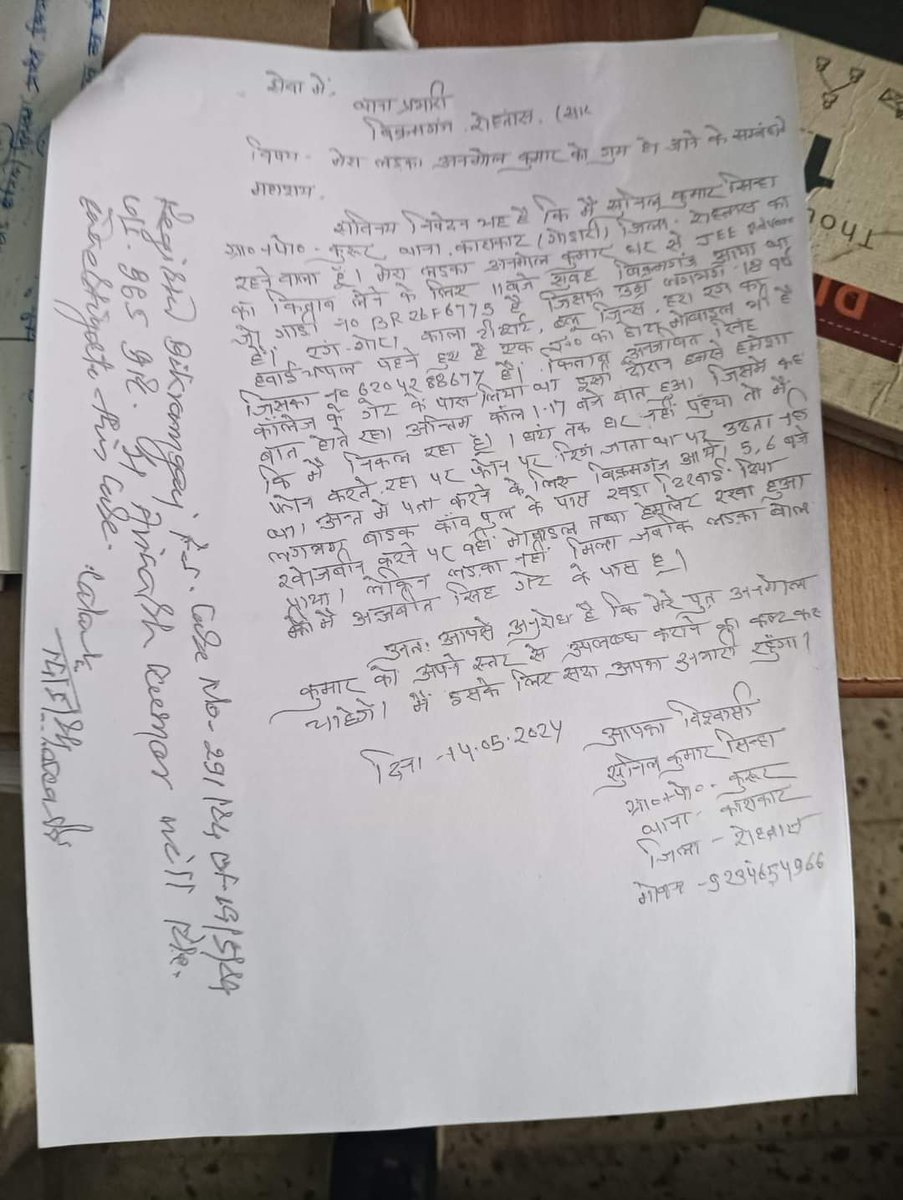 सेवा में,
थाना प्रभारी
बिक्रमगंज, रोहतास.
विषय - मेरा लड़का अनमोल कुमार को गुम हो जाने के सम्बंध में
महाशय,
सविनय निवेदन यह है कि मैं सुनिल कुमार सिन्हा
ग्रा०+पो०- कुरूर थाना काराकाट (गोडारी) जिला- रोहतास का
रहने वाला हूँ। मेरा लड़का अनमोल कुमार घर से JEE Advance
का किताब लेने के लिए 11 बजे सुबह बिक्रमगंज आया था
जो गाड़ी नं० BR26F6775 है जिसका उम्र लगभग 18 वर्ष
है। रंग-गोरा, काला टीशर्ट, ब्लू जिन्स, हरा रंग का
हवाई चप्पल पहने हुए है एक मोबाइल भी है
जिसका नं० 6204288677 है। किताब अनजबित सिंह
कॉलेज के गेट के पास लिया था इसी दौरान हमसे हमेशा
बात होते रहा। अन्तिम कॉल 1.17 बजे बात हुआ जिसमें कहा
कि मैं निकल रहा हूँ। 1 घंटा तक घर नहीं पहुंचा तो मैं
फोन करते रहा पर फोन पर रिंग जाता था पर उठता नहीं
था। अन्त में पता करने के लिए बिक्रमगंज आये। 5,6 बजे
लगभग बाइक काव पुल के पास खड़ा दिखाई दिया
खोजबीन करने पर वहीं मोबाइल तथा हेमलेट रखा हुआ
पाया। लेकिन लड़का नहीं मिला जबकि लड़का बोला
कि मैं अंजबीत सिंह गेट के पास हूँ।
अतः आपसे अनुरोध है कि मेरे पुत्र अनमोल
कुमार को अपने स्तर से उपलब्ध कराने का कष्ट कर
चाहेंगे। मैं इसके लिए सदा आपका आभारी रहूँगा।
दिनां -14.05.2024
आपका विश्वासी
सुनिल कुमार सिन्हा
ग्रा०+पो०- कुरूर
थाना- काराकाट
जिला - रोहतास
मोबा० -9234654966
Register Bikramganj P.S. Case No-291/24 dt-19/5/24
u/s. 365 Avinash Kumar will
investigate this case.